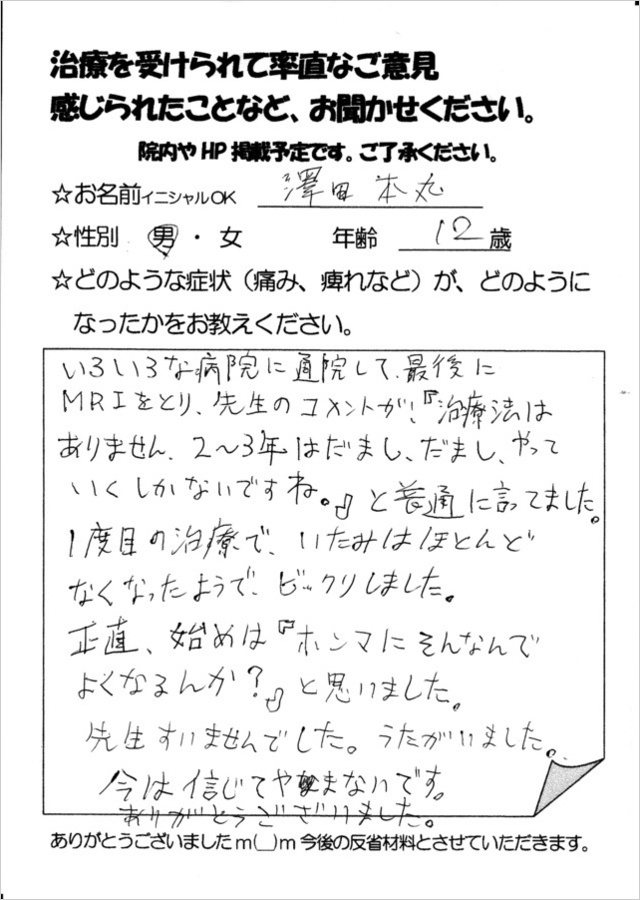 治療を受けられて率直なご意見
感じられたことなど、お聞かせください。
院内やHP掲載予定です。ご了承ください。
☆お名前イニシャルOK 澤田 本丸
☆性別 男・女 年齢 12歳
☆どのような症状（痛み、痺れなど）が、どのように
なったかをお教えください。
いろいろな病院に通院して、最後に
MRIをとり、先生のコメントが、『治療法は
ありません、2〜3年はだまし、だまし、やって
いくしかないですね。』と普通に言ってました。
1度目の治療で、いたみはほとんど
なくなったようで、ビックリしました。
正直、始めは『ホンマにそんなんで
よくなるんか？』と思いました。
先生すいませんでした。うたがいました。
今は信じてやまないです。
ありがとうございました。
ありがとうございましたm(__)m今後の反省材料とさせていただきます。